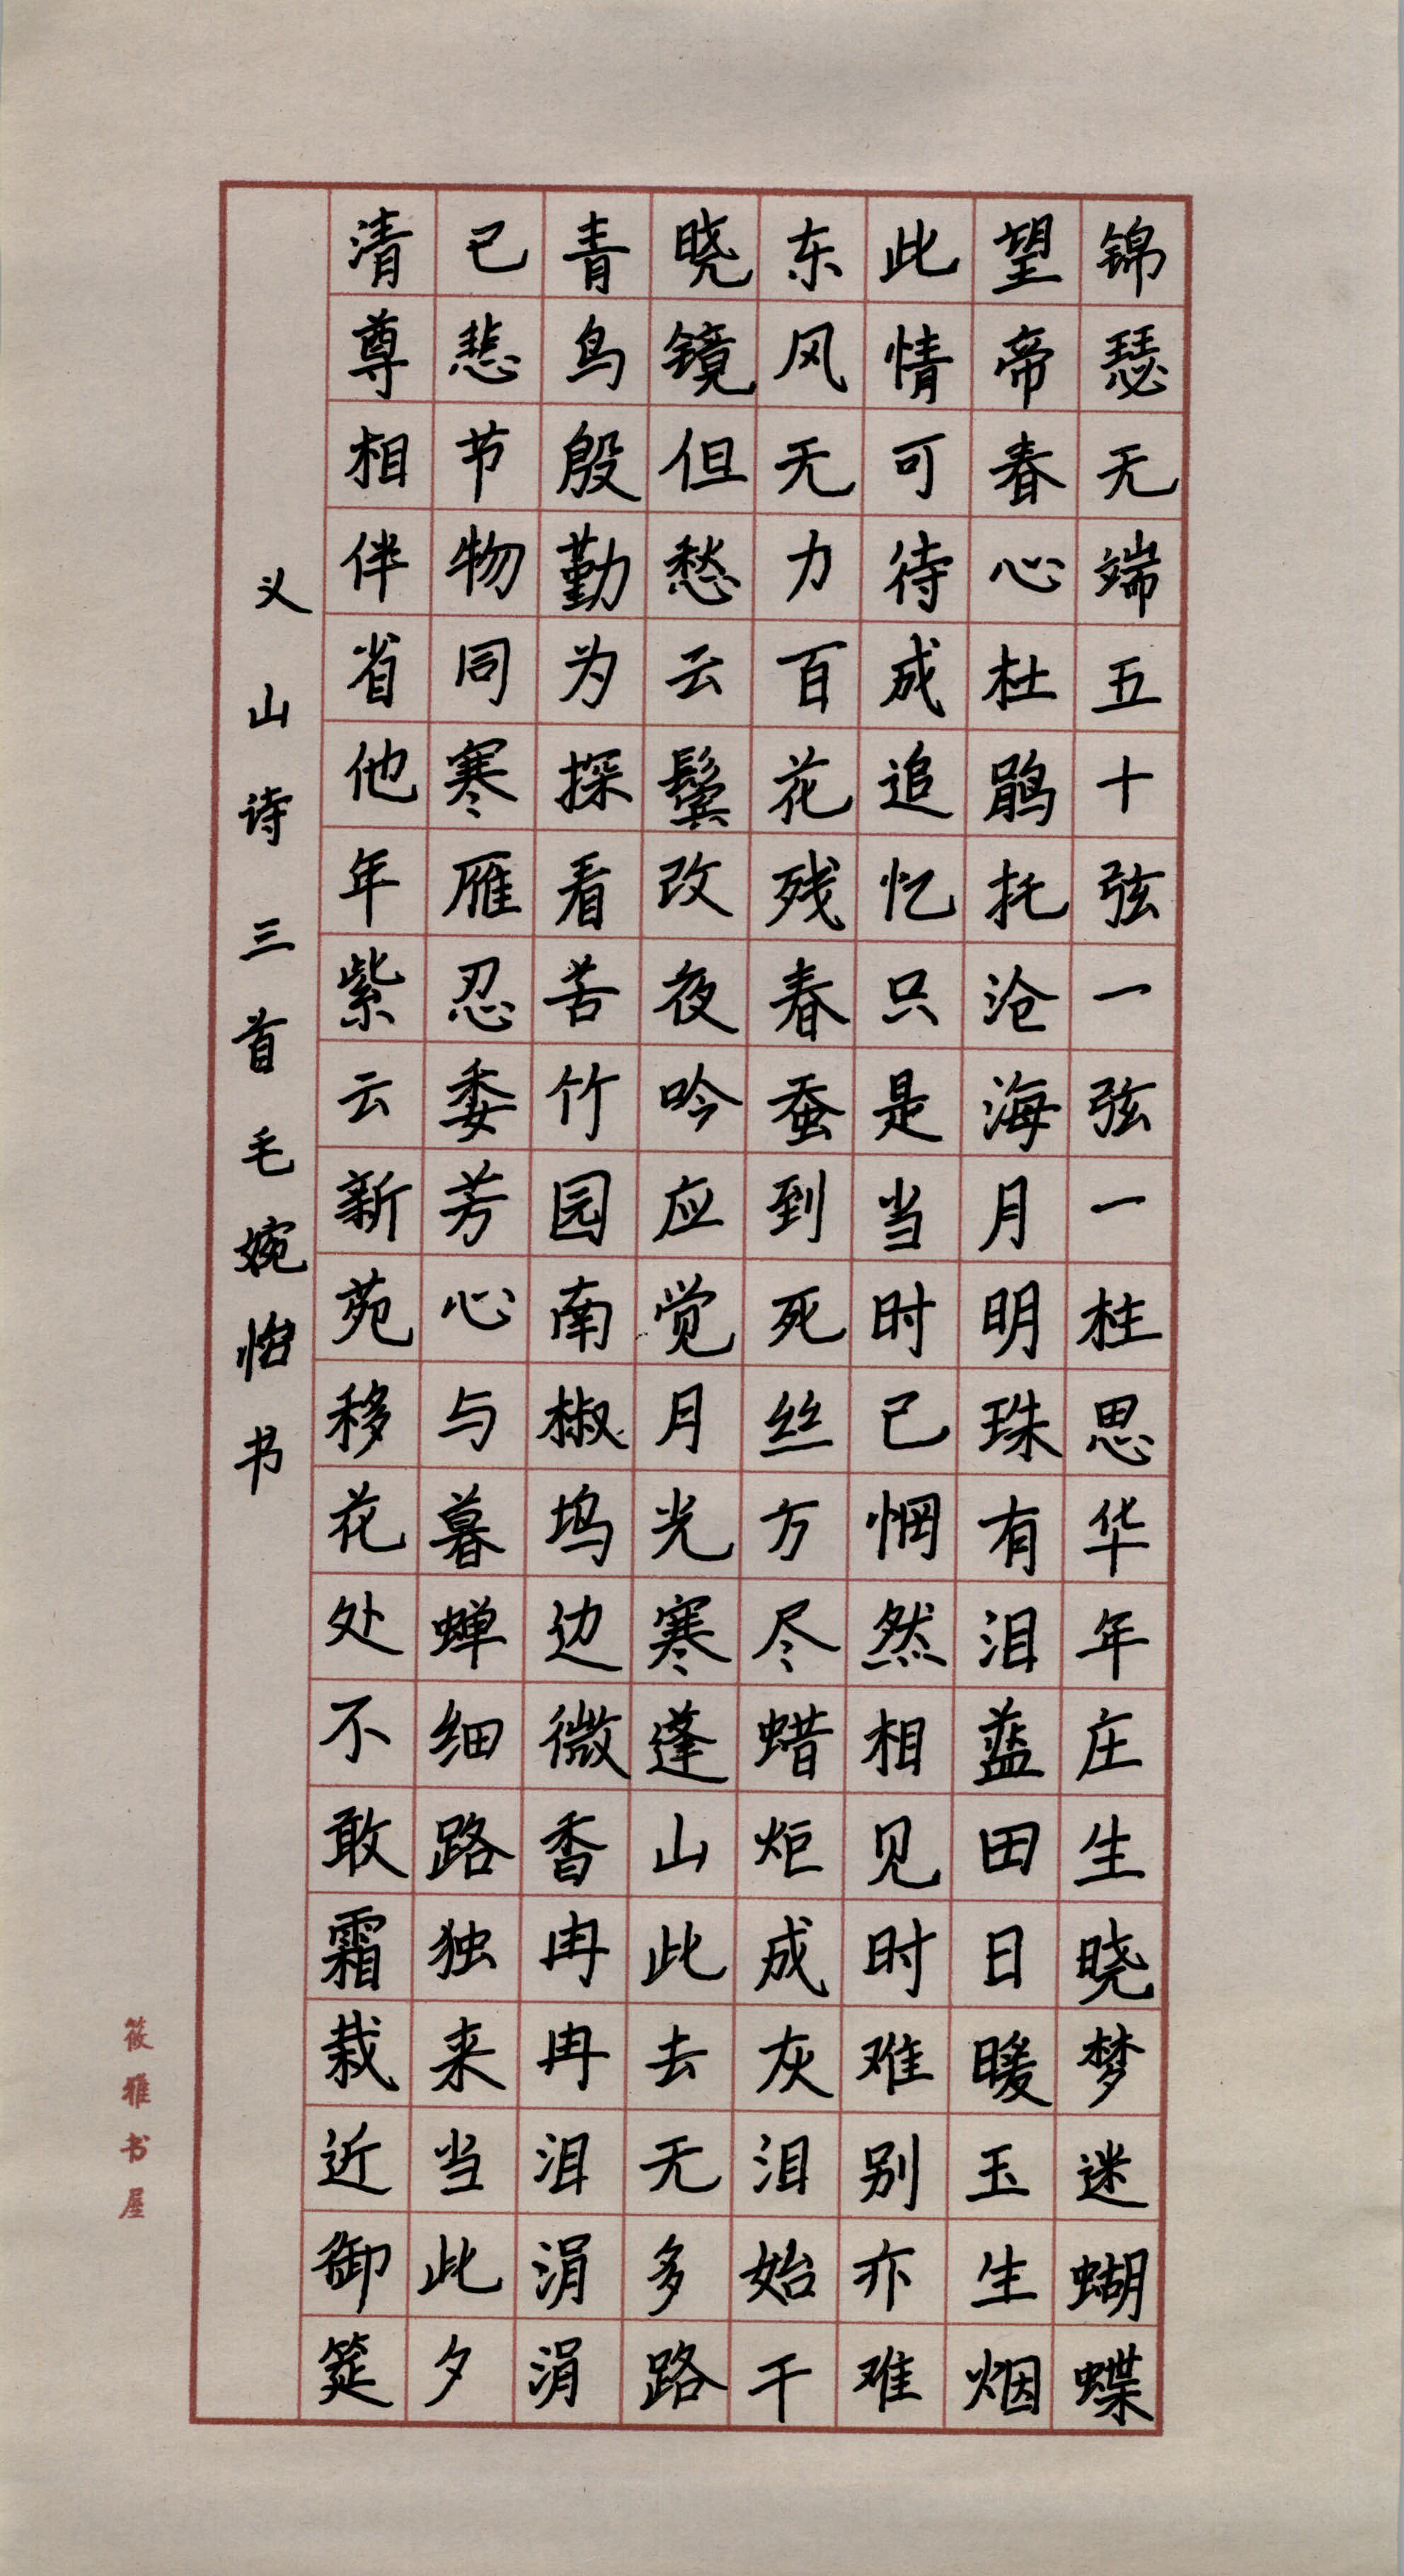 锦瑟无端五十弦一弦一柱思华年庄生晓梦迷蝴蝶
望帝春心杜鹃托沧海月明珠有泪蓝田日暖玉生烟
此情可待成追忆只是当时已惘然相见时难别亦难
东风无力百花残春蚕到死丝方尽蜡炬成灰泪始干
晓镜但愁云鬓改夜吟应觉月光寒蓬山此去无多路
青鸟殷勤为探看苦竹园南椒坞边微香冉冉泪涓涓
已悲节物同寒雁忍委芳心与暮蝉细路独来当此夕
清尊相伴省他年紫云新苑移花处不敢霜栽近御筵
义山诗三首毛婉怡书
筱雅书屋